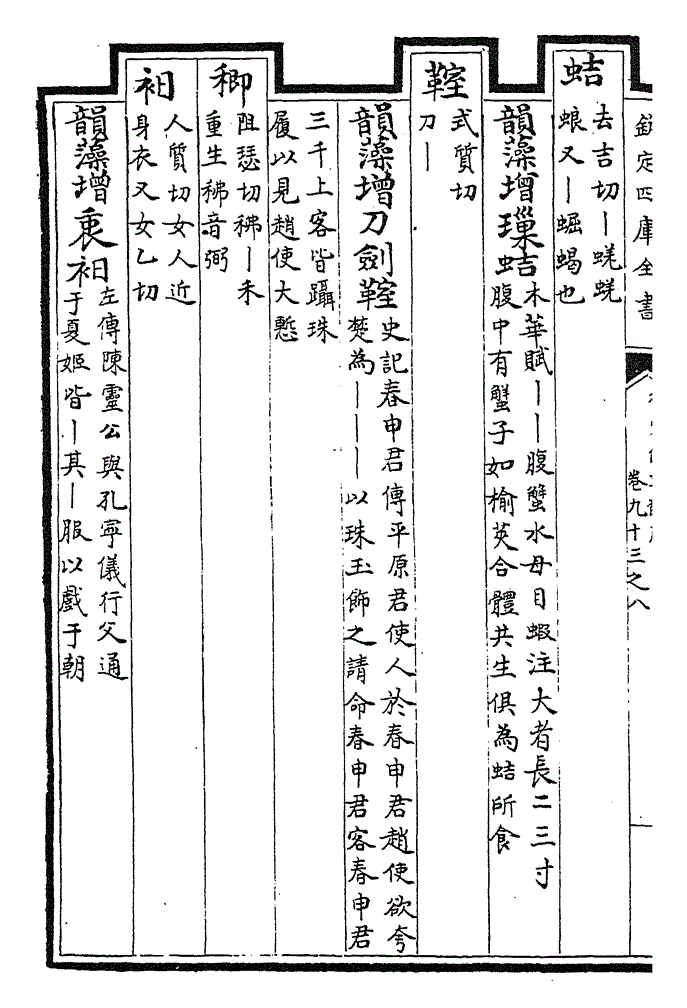 欽定四庫全書
卷九十三之八
蛣
去吉切丨蜣蜣
蜋又丨蜛蝎也
韻藻增璅蛣
木華賦丨丨腹蟹水母目蝦注大者長二三寸
腹中有蟹子如榆莢合體共生俱為蛣所食
䩢
式質切
刀丨
韻藻增刀劍䩢
史記春申君傳平原君使人於春申君趙使欲夸
楚為丨丨丨以珠玉飾之請命春申君客春申君
三千上客皆躡珠
履以見趙使大慙
㮨
阻瑟切䄶丨禾
重生䄶音弼
衵
人質切女人近
身衣又女乙切
韻藻增衷衵
左傳陳靈公與孔寧儀行父通
于夏姬皆丨其丨服以戲于朝